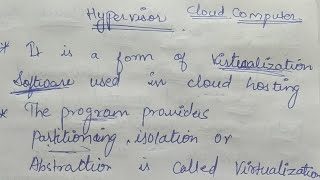 Hypervisor Cloud Computer
* It is a form of Virtualization
Software used in cloud hosting
* The program provides
Partitioning, isolation or
Abstraction is called Virtualization